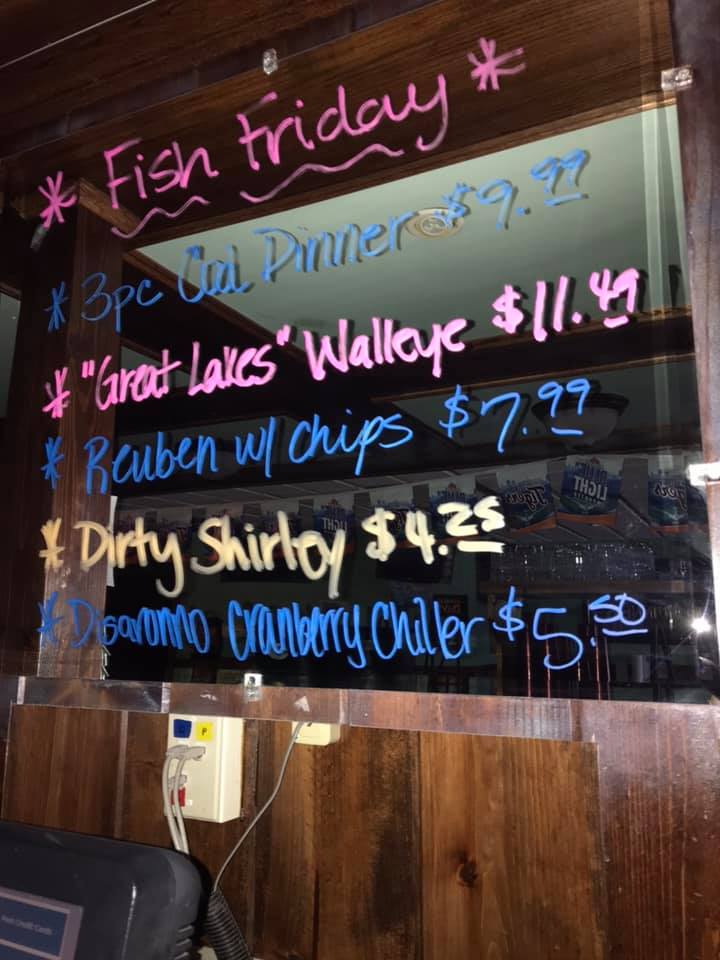 * Fish Friday *
* 3pc Cod Dinner $9.99
* "Great Lakes" Walleye $11.49
* Reuben w/ chips $7.99
* Dirty Shirley $4.25
* Disaronno Cranberry Chiller $5.50
Tigers
LIGHT
P